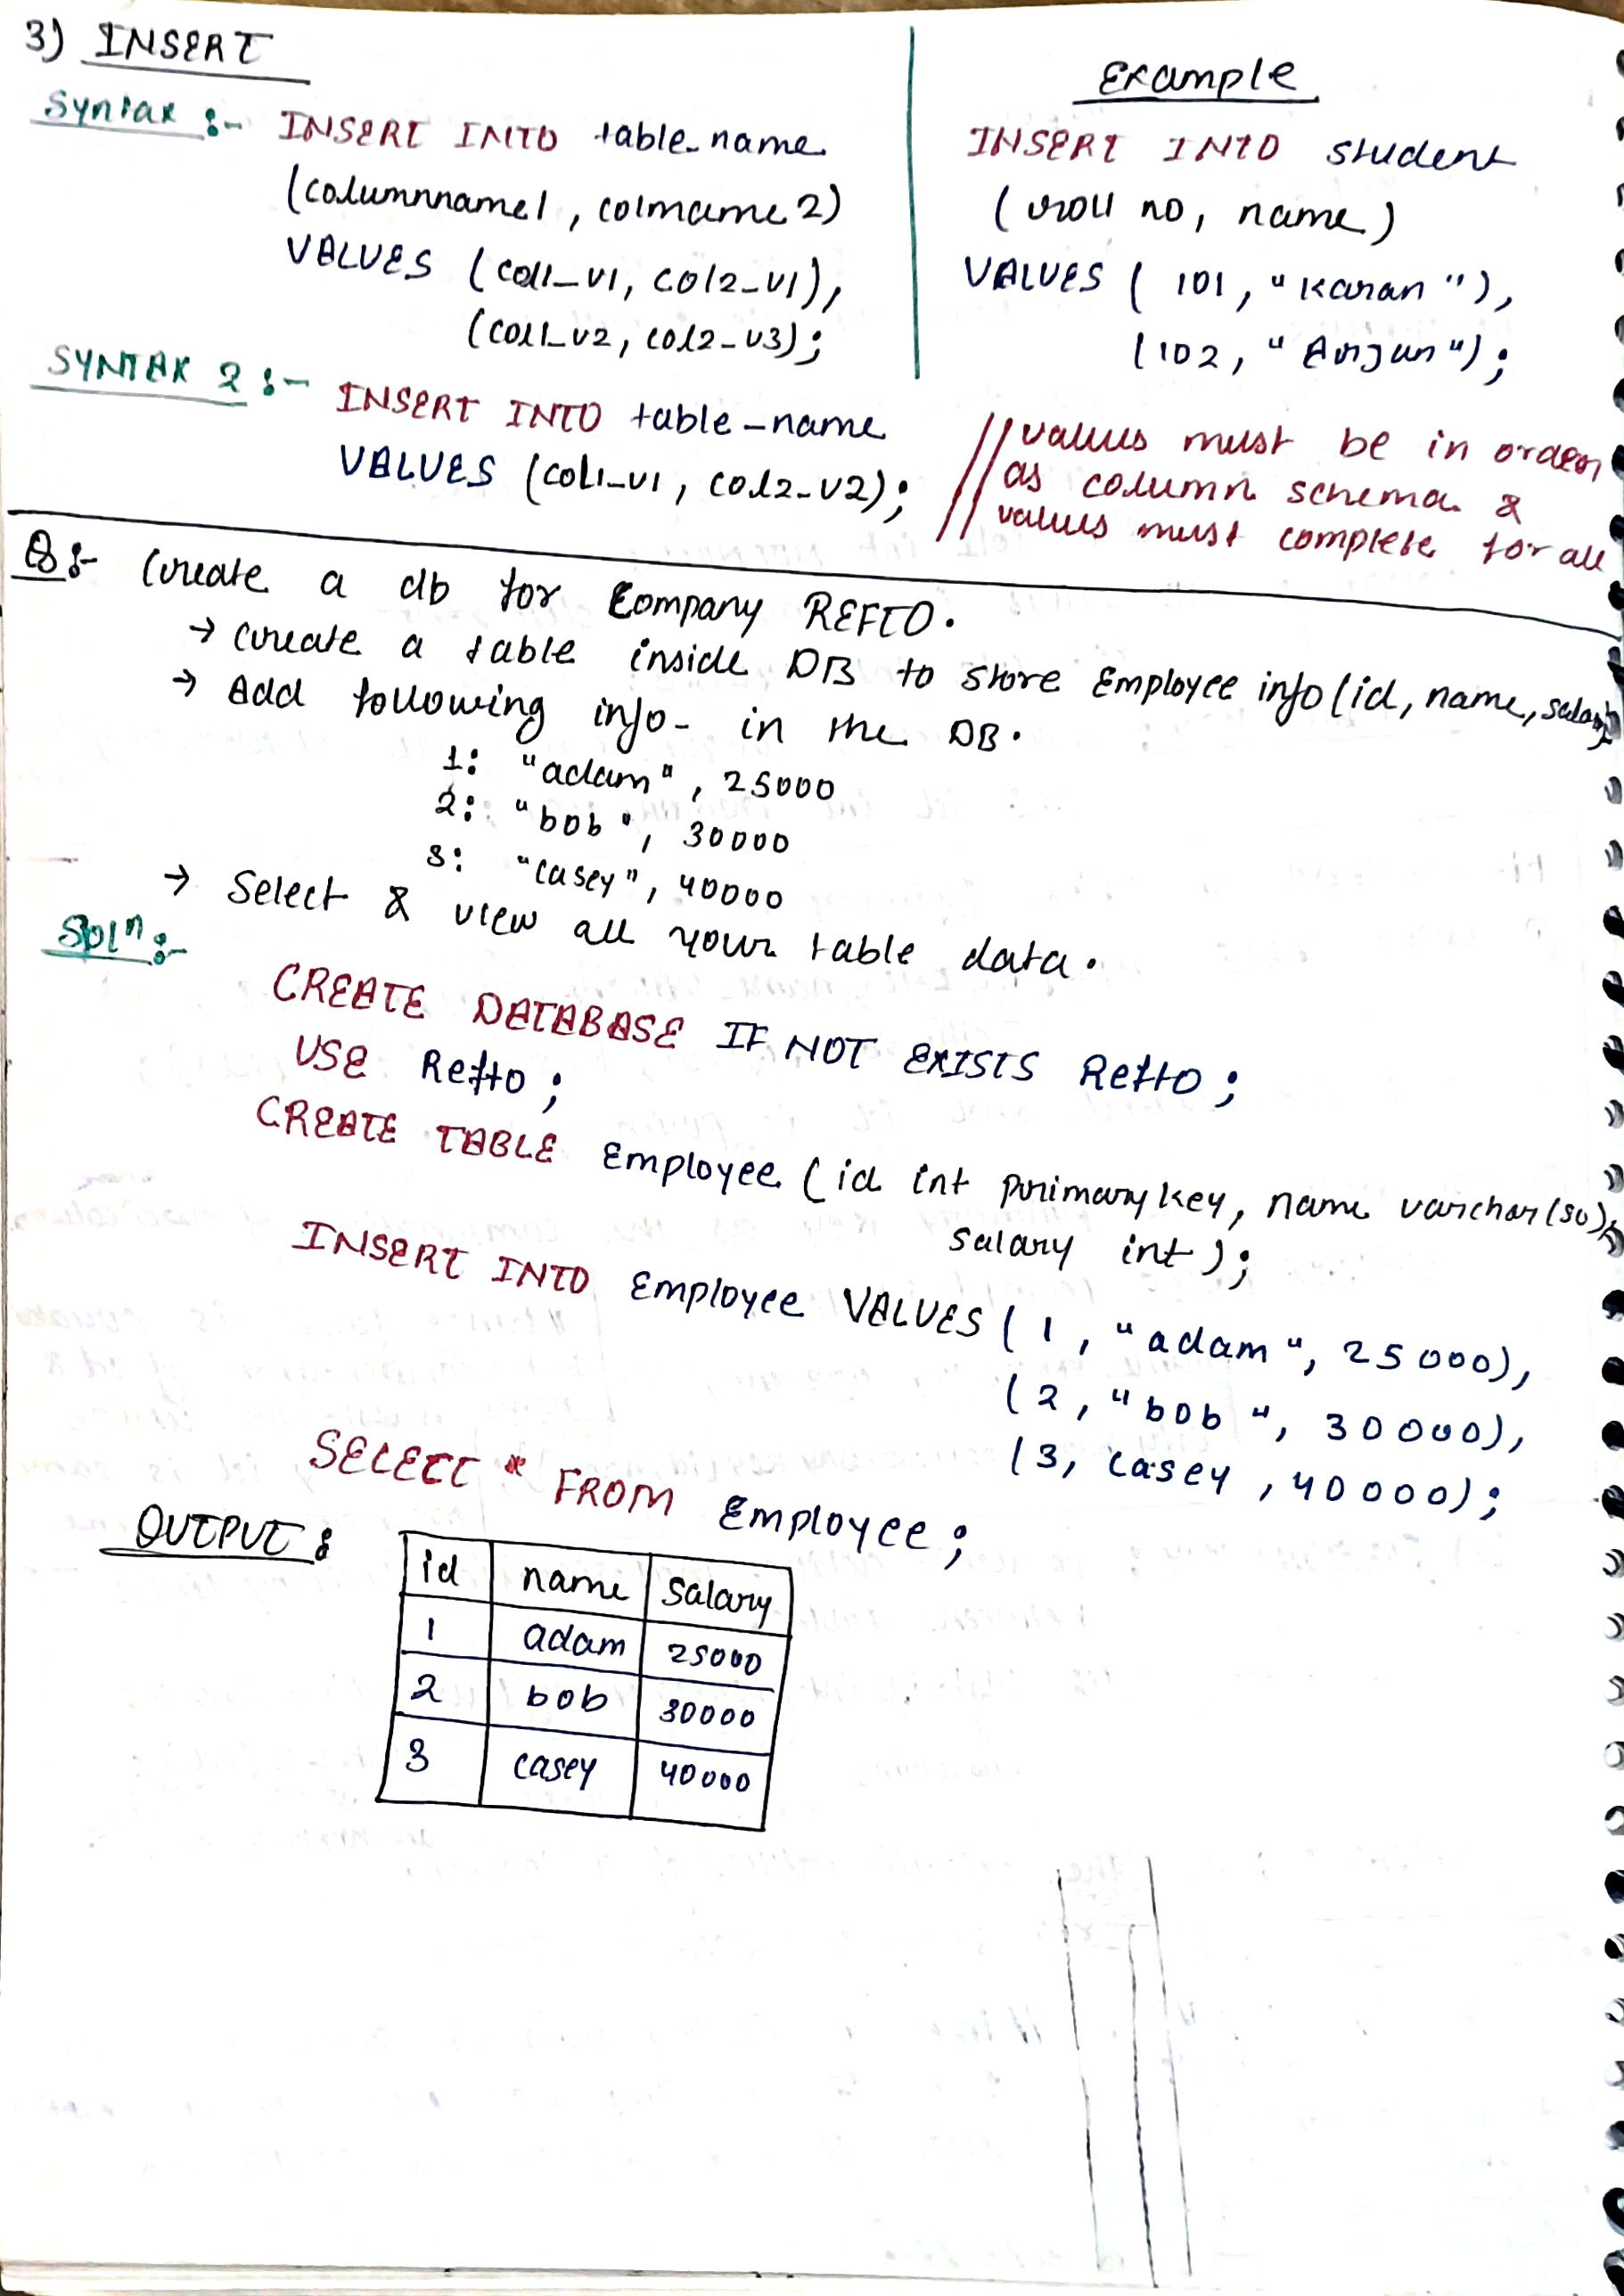 3) INSERT
Syntax :- INSERT INTO table_name
(columnname1, colmame2)
VALUES (col1_v1, col2_v1),
(col1_v2, col2_v3);
Example
INSERT INTO student
(roll no, name)
VALUES ( 101, "Karan"),
(102, "Arjun");
SYNTAX 2 :- INSERT INTO table_name
VALUES (col1_v1, col2_v2);
// values must be in order
// as column schema &
// values must complete for all
Q:- Create a db for Company REFTO.
→ create a table inside DB to store Employee info (id, name, salary)
→ Add following info- in the DB.
1: "adam", 25000
2: "bob", 30000
3: "casey", 40000
→ Select & view all your table data.
Solⁿ:-
CREATE DATABASE IF NOT EXISTS Refto;
USE Refto;
CREATE TABLE Employee (id int primary key, name varchar(50),
salary int);
INSERT INTO Employee VALUES (1, "adam", 25000),
(2, "bob", 30000),
(3, casey, 40000);
SELECT * FROM Employee;
OUTPUT:
id name salary
1 adam 25000
2 bob 30000
3 casey 40000